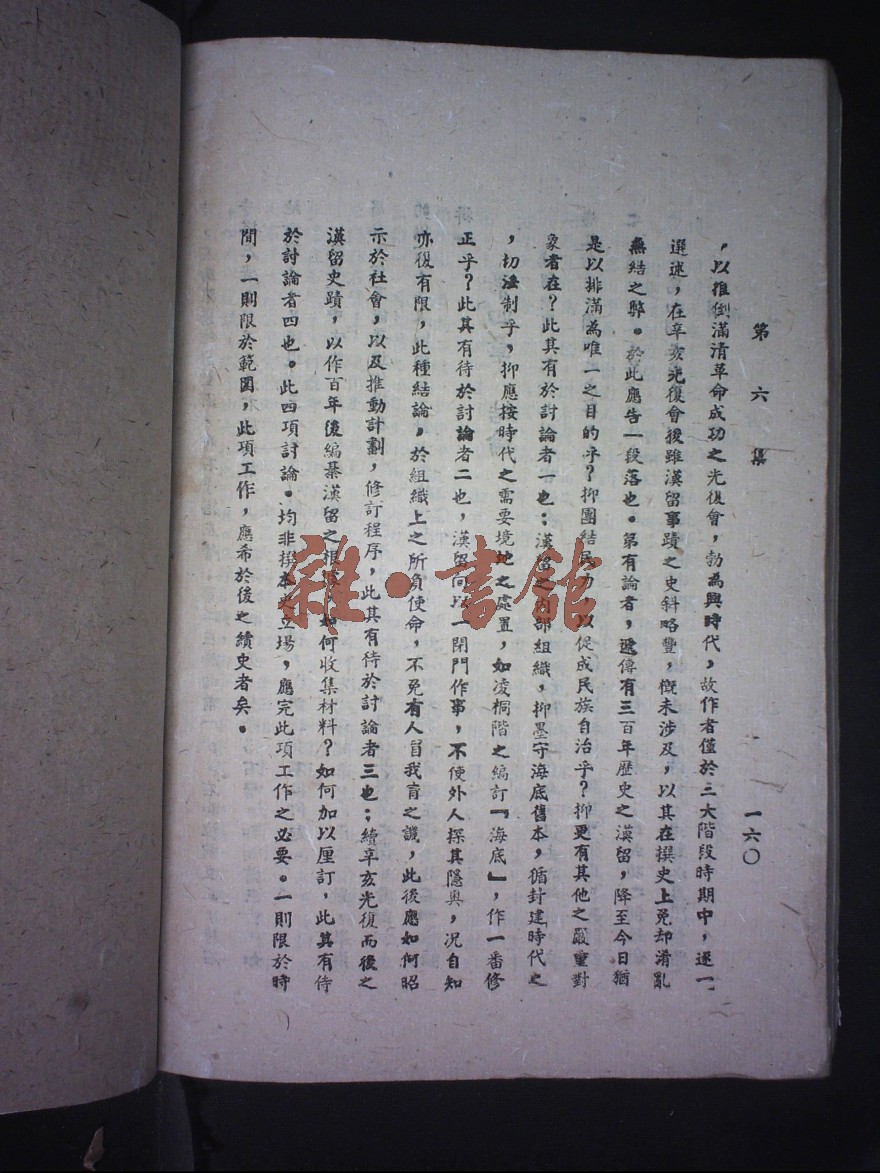 第六集　一六〇
，以推倒滿清革命成功之光復會，勃為興時代，故作者僅於三大階段時期中，逐一
選述，在辛亥光復會後雖漢留事蹟之史料略豐，概未涉及，以其在撰史上免却淆亂
無結之弊。於此應告一段落也。第有論者，遞傳有三百年歷史之漢留，降至今日猶
是以排滿為唯一之目的乎？抑團結民力以促成民族自治乎？抑更有其他之嚴重對
象者在？此其有於討論者一也：漢留之內部組織，抑墨守海底舊本，循封建時代之
，切法制乎，抑應按時代之需要境地之處置，如凌桐階之編訂『海底』，作一番修
正乎？此其有待於討論者二也，漢留何以一閉門作事，不使外人探其隱奧，況自知
亦復有限，此種結論。於組織上之所負使命，不免有人盲我盲之譏，此後應如何昭
示於社會，以及推動計劃，修訂程序，此其有待於討論者三也；續辛亥光復而後之
漢留史蹟，以作百年後編纂漢留之根　　如何收集材料？如何加以厘訂，此其有待
於討論者四也。此四項討論。均非撰本史立場，應完此項工作之必要。一則限於時
間，一則限於範圍，此項工作，應希於後之續史者矣。
雜·書館